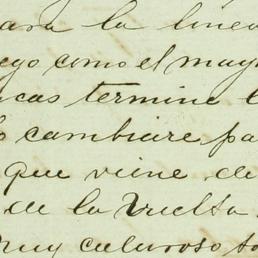 ara la linea
ego como el may
cas termine l
cambiare pa
que viene de
de la vuelta
muy caluroso to